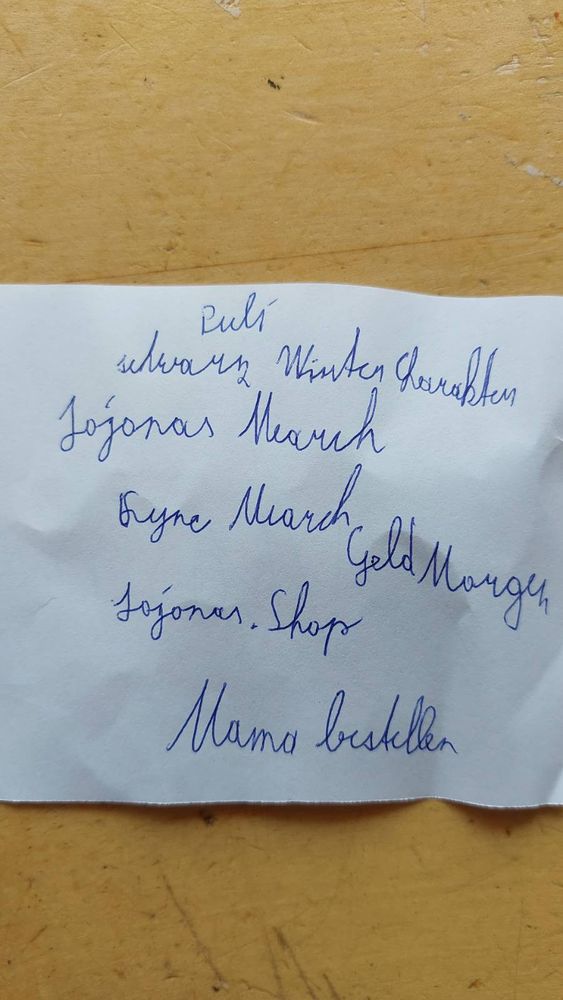 Puli
schwarz Winter Charakter
Jojonas Mearch
Mearch
Geld Morgen
Jojonas. Shop
Mama bestellen